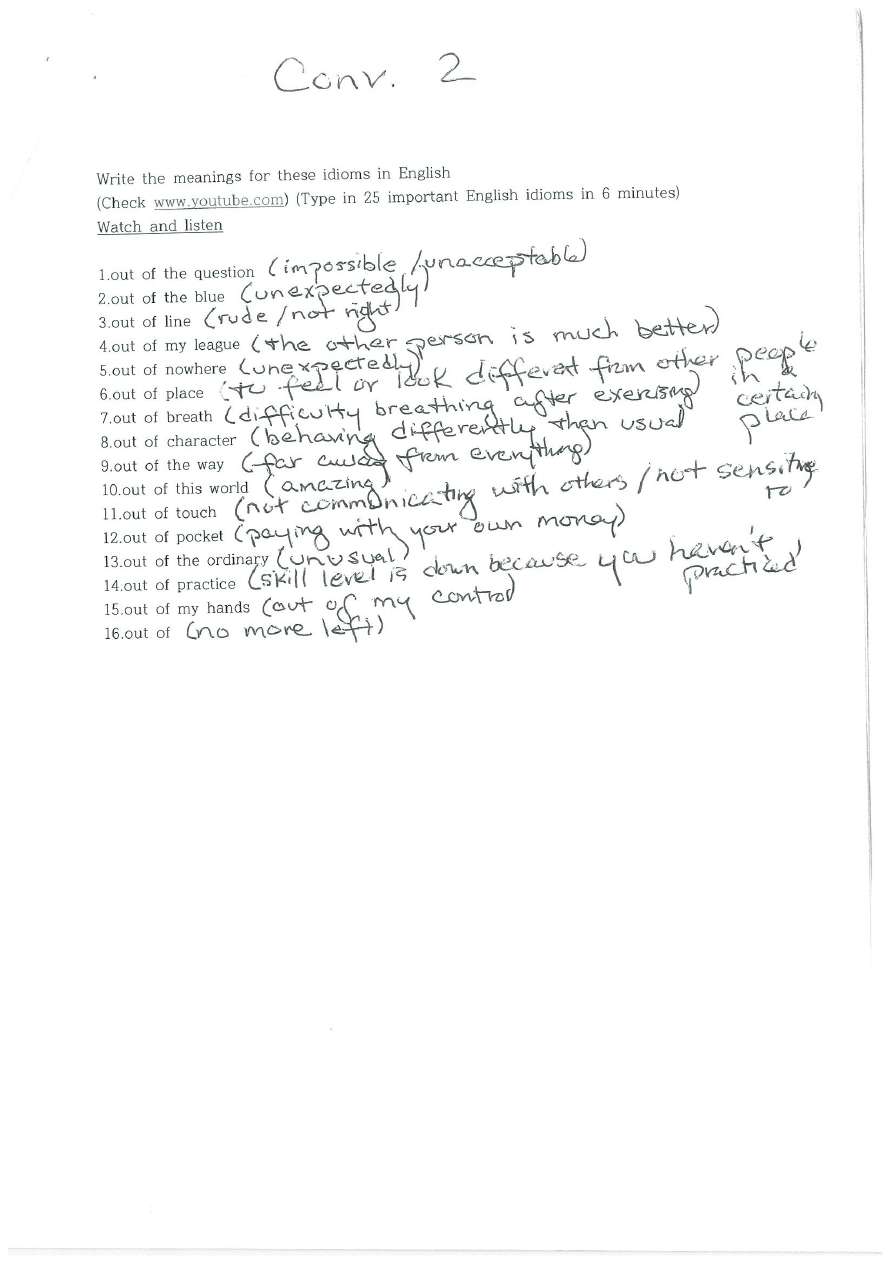 Conv. 2
Write the meanings for these idioms in English
(Check www.youtube.com) (Type in 25 important English idioms in 6 minutes)
Watch and listen
1.out of the question (impossible /unacceptable)
2.out of the blue (unexpectedly)
3.out of line (rude /not right)
4.out of my league (the other person is much better)
5.out of nowhere (unexpectedly)
6.out of place (to feel or look different from other people in a certain place
7.out of breath (difficulty breathing after exersing)
8.out of character (behaving differently than usual
9.out of the way (far away from everything)
10.out of this world (amazing)
11.out of touch (not communicating with others / not sensitive to
12.out of pocket (paying with your own money)
13.out of the ordinary (unusual)
14.out of practice (skill level is down because you haven't practiced)
15.out of my hands (out of my control)
16.out of (no more left)